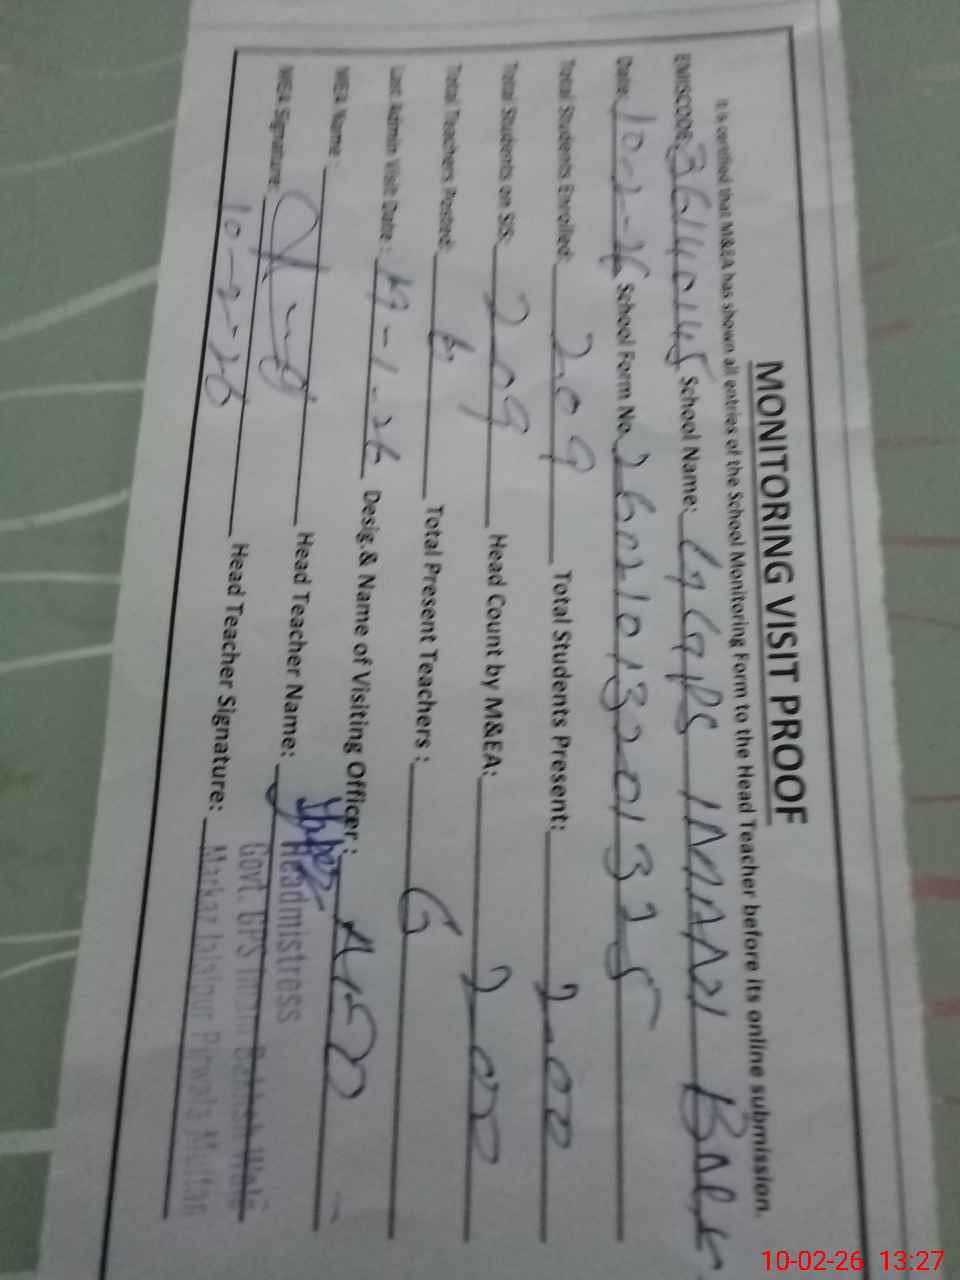 MONITORING VISIT PROOF
It is certified that M&EA has shown all entries of the School Monitoring Form to the Head Teacher before its online submission.
EMISCODE: 36140145 School Name: GGPS IMAM
Date: 10-2-26 School Form No. 26021013201325
Total Students Enrolled: 209 Total Students Present: 200
Total Students on SIS: 209 Head Count by M&EA: 200
Total Teachers Posted: 6 Total Present Teachers: 6
Last Admin Visit Date: -1-26 Desig.& Name of Visiting Officer:
MEA Name: Head Teacher Name:
Headmistress
MEA Signature: Head Teacher Signature:
10-2-26
Govt. GPS Bakhsh Wala
Markaz Jalalpur Pirwala Multan
10-02-26 13:27